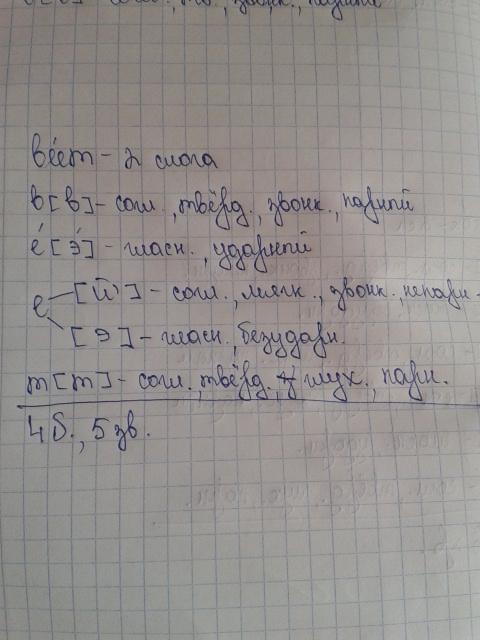 ве́ет – 2 слога
в [в] – согл., твёрд., звонк., парный
е́ [э́] – гласн., ударный
е [й'] – согл., мягк., звонк., непарн.
[э] – гласн., безударн.
т [т] – согл., твёрд., глух., парн.
4 б., 5 зв.